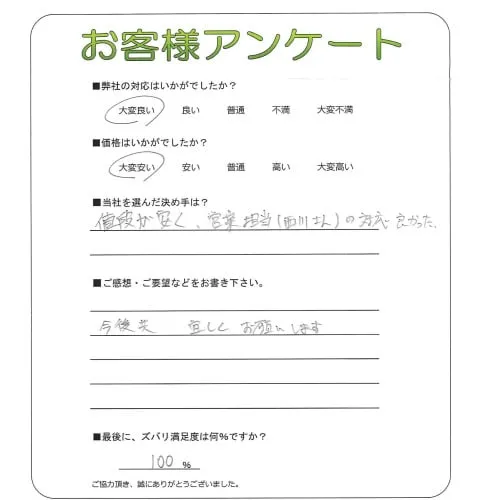 お客様アンケート
■弊社の対応はいかがでしたか？
大変良い 良い 普通 不満 大変不満
■価格はいかがでしたか？
大変安い 安い 普通 高い 大変高い
■当社を選んだ決め手は？
値段が安く、営業担当(西川さん)の対応が良かった。
■ご感想・ご要望などをお書き下さい。
今後共 宜しくお願いします
■最後に、ズバリ満足度は何%ですか？
100 %
ご協力頂き、誠にありがとうございました。